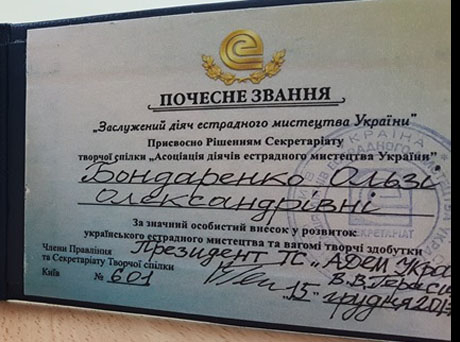 ПОЧЕСНЕ ЗВАННЯ
„Заслужений діяч естрадного мистецтва України”
Присвоєно Рішенням Секретаріату
творчої спілки „Асоціація діячів естрадного мистецтва України”
Бондаренко Ользі
Олександрівні
За значний особистий внесок у розвиток
українського естрадного мистецтва та вагомі творчі здобутки
Члени Правління Президент ТС „АДЕМ
та Секретаріату Творчої спілки В.В.
Київ № 601 „15” грудня